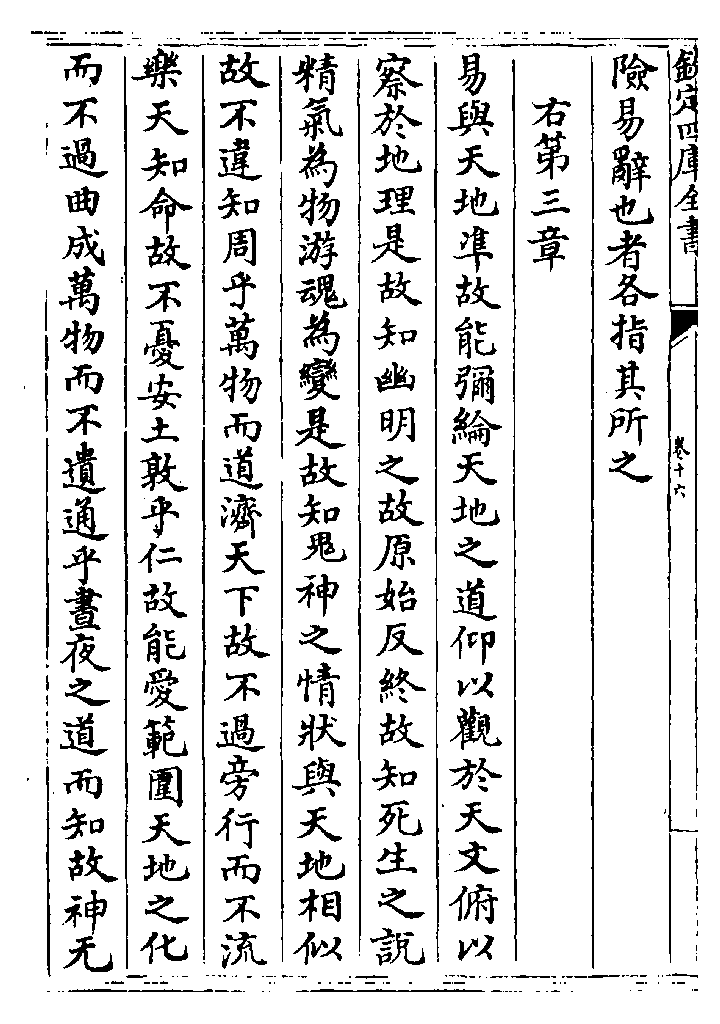 欽定四庫全書
卷十六
險易辭也者各指其所之
右第三章
易與天地凖故能彌綸天地之道仰以觀於天文俯以
察於地理是故知幽明之故原始反終故知死生之說
精氣為物游魂為變是故知鬼神之情狀與天地相似
故不違知周乎萬物而道濟天下故不過旁行而不流
樂天知命故不憂安土敦乎仁故能愛範圍天地之化
而不過曲成萬物而不遺通乎晝夜之道而知故神无